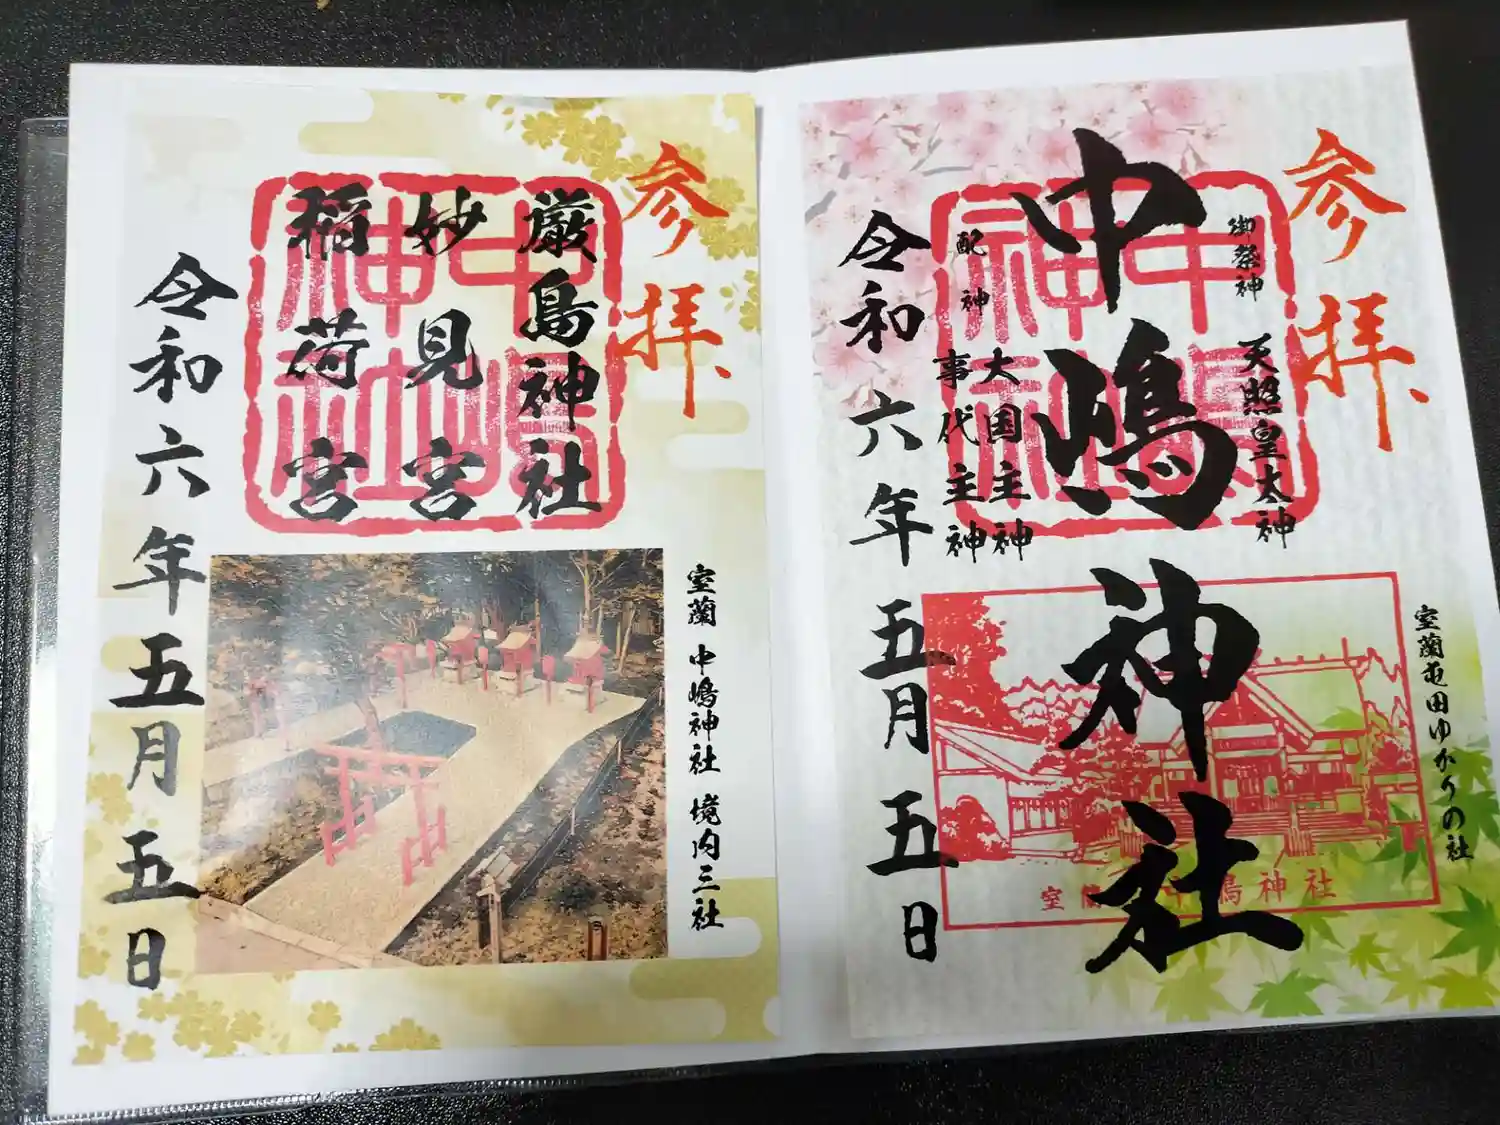 参拝、
御祭神 天照皇大神
中嶋神社
配神 大国主神
事代主神
令和六年五月五日
室蘭屯田ゆかりの社
中嶋神社
参拝、
厳島神社
妙見宮
稲荷宮
令和六年五月五日
室蘭 中嶋神社 境内三社
中嶋神社